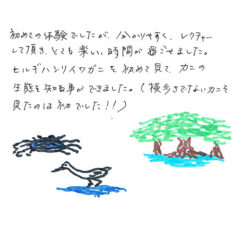 初めての体験でしたが、分かりやすく、レクチャー
して頂き、とても楽しい時間が過ごせました。
ヒルギハシリイワガニを初めて見て、カニの
生態を知る事ができました。(横歩きでないカニを
見たのは初でした!!)